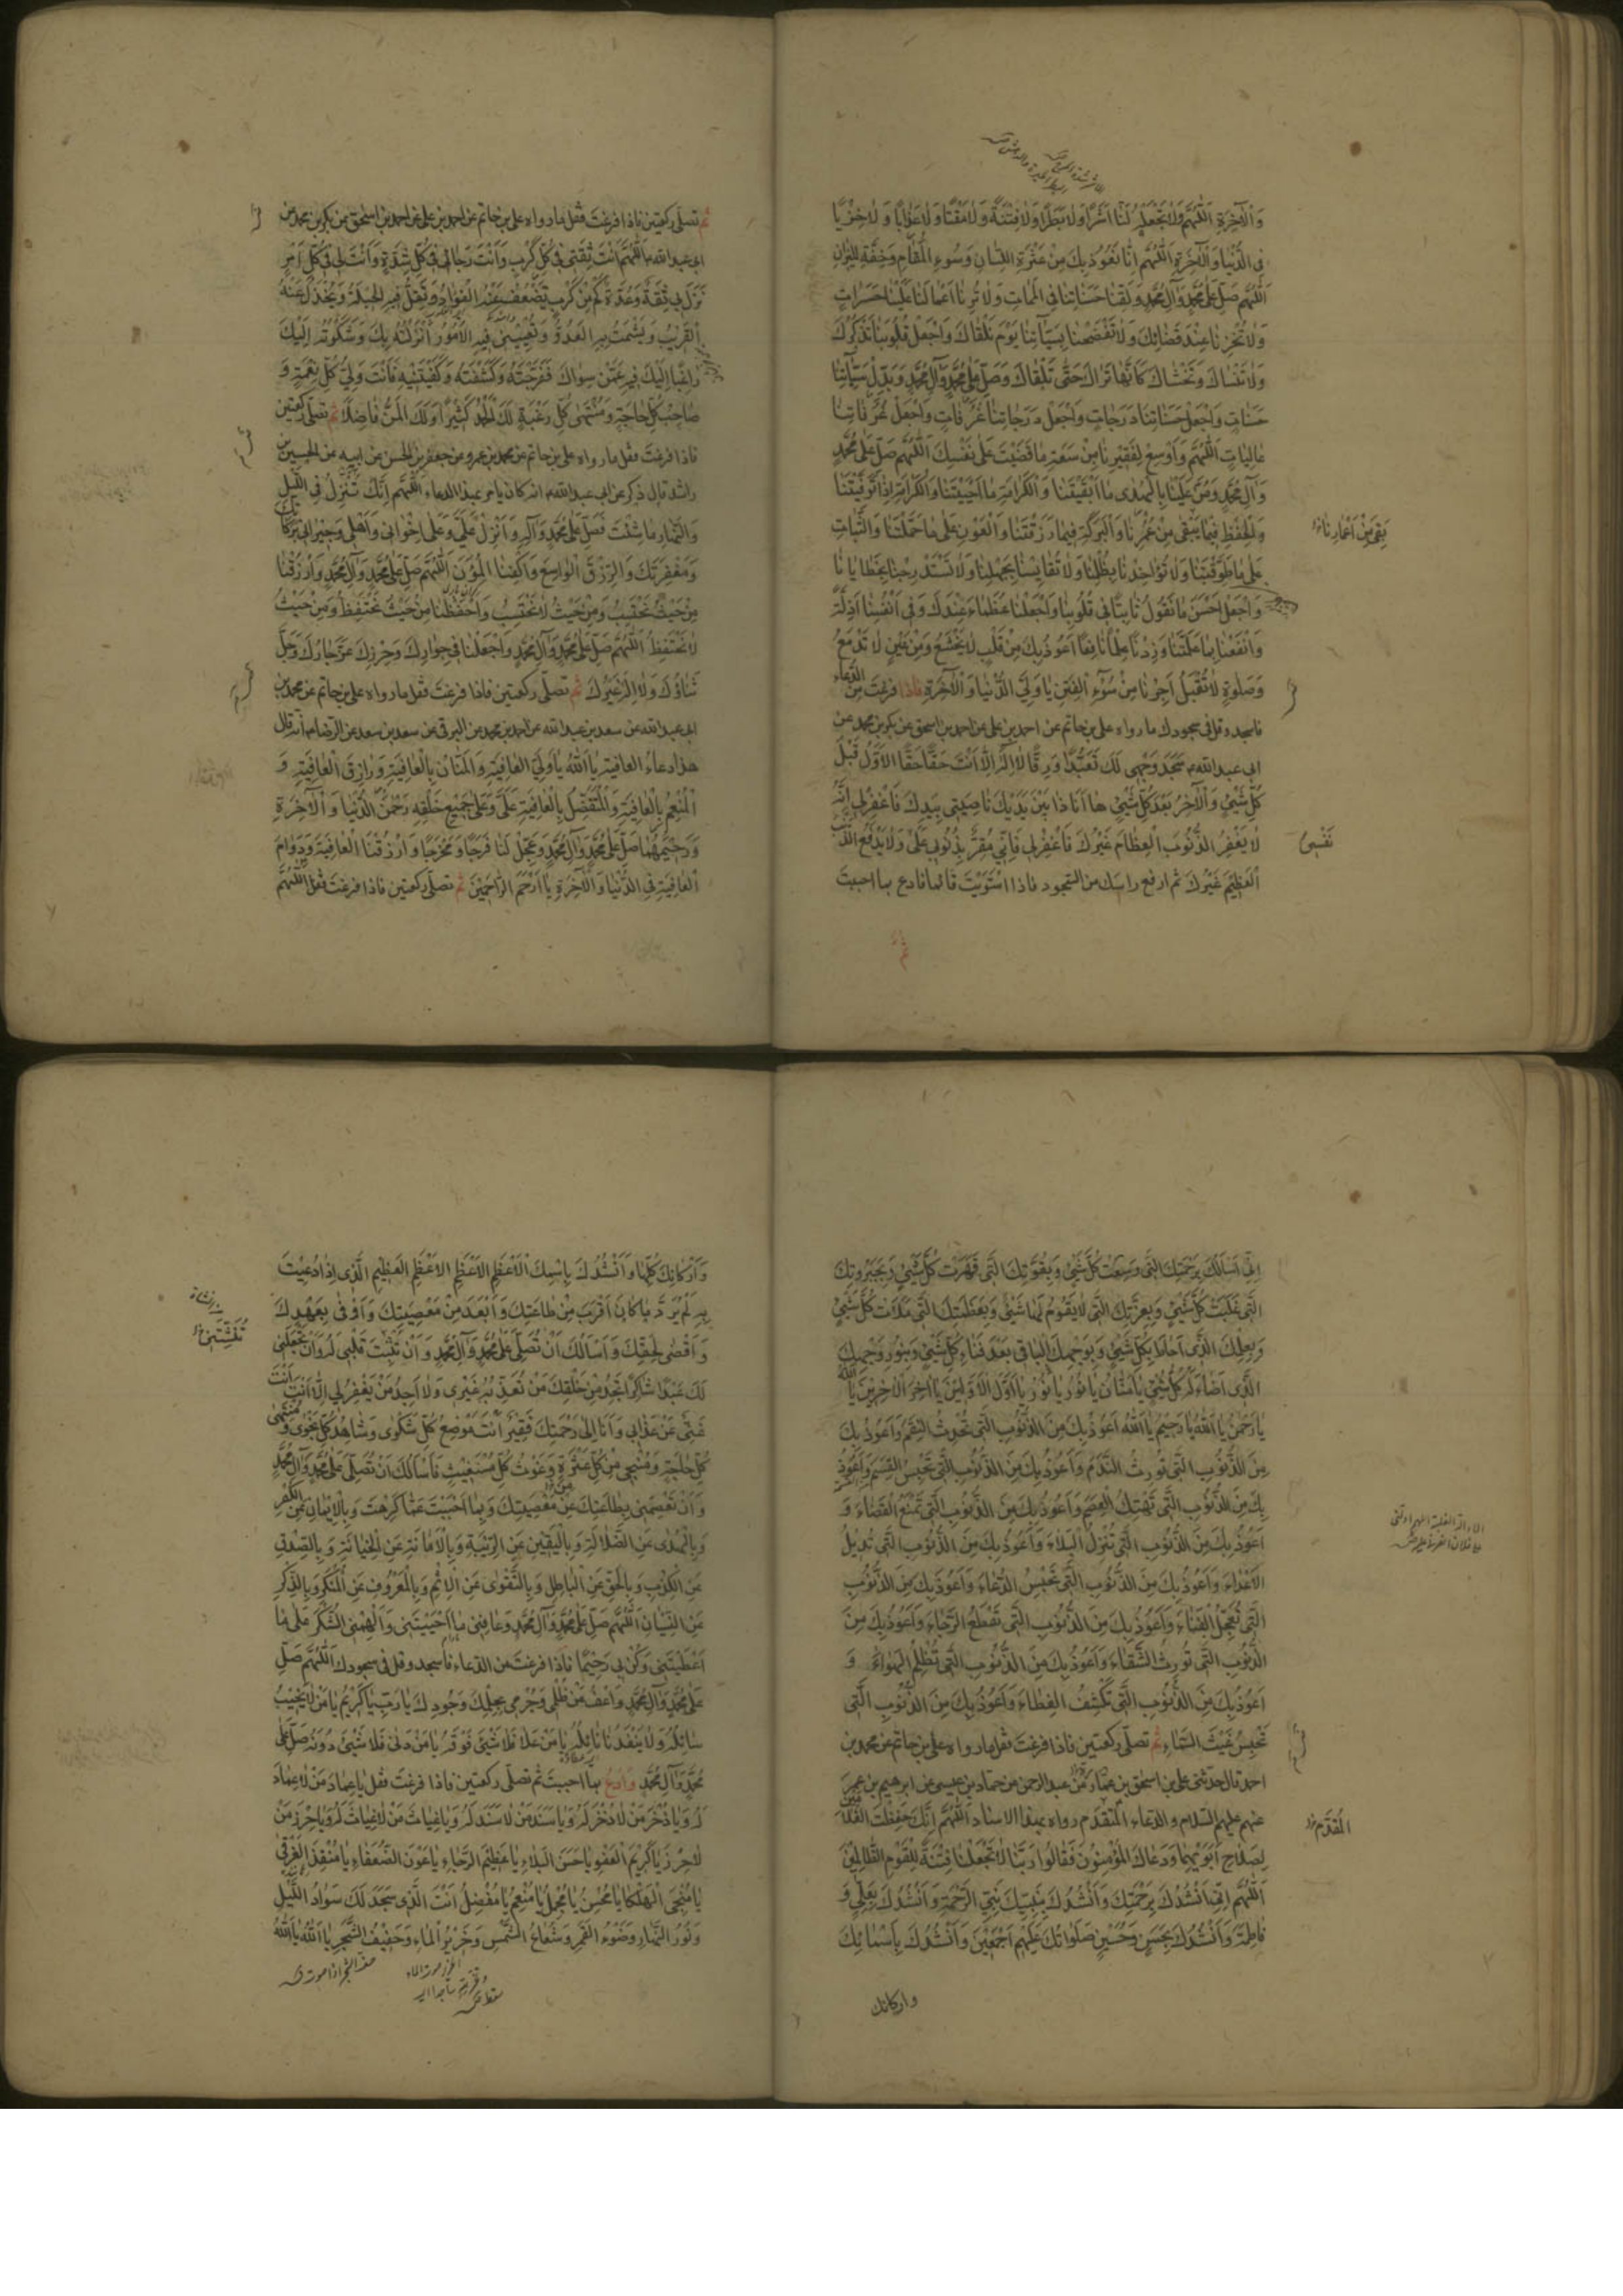 وَالْآخِرَةِ اَللّٰهُمَّ وَلَا تَجْعَلْهُ لَنَا اَشَرًا وَلَا بَطَرًا وَلَا فِتْنَةً وَلَا مَقْتًا وَلَا عَذَابًا وَلَا خِزْيًا
فِي الدُّنْيَا وَالْآخِرَةِ اَللّٰهُمَّ اِنَّا نَعُوذُ بِكَ مِنْ عَثْرَةِ اللِّسَانِ وَسُوءِ الْمَقَامِ وَخِفَّةِ الْمِيزَانِ
اَللّٰهُمَّ صَلِّ عَلَى مُحَمَّدٍ وَآلِ مُحَمَّدٍ وَلَقِّنَا حَسَنَاتِنَا فِي الْمَمَاتِ وَلَا تُرِنَا اَعْمَالَنَا عَلَيْنَا حَسَرَاتٍ
وَلَا تُخْزِنَا عِنْدَ قَضَائِكَ وَلَا تَفْضَحْنَا بِسَيِّآتِنَا يَوْمَ نَلْقَاكَ وَاجْعَلْ قُلُوبَنَا تَذْكُرُكَ
وَلَا تَنْسَاكَ وَتَخْشَاكَ كَاَنَّهَا تَرَاكَ حَتّٰى تَلْقَاكَ وَصَلِّ عَلَى مُحَمَّدٍ وَآلِ مُحَمَّدٍ وَبَدِّلْ سَيِّآتِنَا
حَسَنَاتٍ وَاجْعَلْ حَسَنَاتِنَا دَرَجَاتٍ وَاجْعَلْ دَرَجَاتِنَا غُرُفَاتٍ وَاجْعَلْ غُرُفَاتِنَا
عَالِيَاتٍ اَللّٰهُمَّ وَاَوْسِعْ لِفَقِيرِنَا مِنْ سَعَةِ مَا قَضَيْتَ عَلَى نَفْسِكَ اَللّٰهُمَّ صَلِّ عَلَى مُحَمَّدٍ
وَآلِ مُحَمَّدٍ وَمُنَّ عَلَيْنَا بِالْهُدَى مَا اَبْقَيْتَنَا وَالْكَرَامَةِ مَا اَحْيَيْتَنَا وَالْكَرَامَةِ اِذَا تَوَفَّيْتَنَا
وَالْحِفْظِ فِيمَا يَبْقَى مِنْ عُمُرِنَا وَالْبَرَكَةِ فِيمَا رَزَقْتَنَا وَالْعَوْنِ عَلَى مَا حَمَّلْتَنَا وَالثَّبَاتِ
بَقِيَ مِنْ اَعْمَارِنَا
عَلَى مَا طَوَّقْتَنَا وَلَا تُؤَاخِذْنَا بِظُلْمِنَا وَلَا تُقَايِسْنَا بِجَهْلِنَا وَلَا تَسْتَدْرِجْنَا بِخَطَايَانَا
وَاجْعَلْ اَحْسَنَ مَا نَقُولُ ثَابِتًا فِي قُلُوبِنَا وَاجْعَلْنَا عُظَمَاءَ عِنْدَكَ وَفِي اَنْفُسِنَا اَذِلَّةً
وَانْفَعْنَا بِمَا عَلَّمْتَنَا وَزِدْنَا عِلْمًا نَافِعًا اَعُوذُ بِكَ مِنْ قَلْبٍ لَا يَخْشَعُ وَمِنْ عَيْنٍ لَا تَدْمَعُ
وَصَلٰوةٍ لَا تُقْبَلُ اَجِرْنَا مِنْ سُوءِ الْفِتَنِ يَا وَلِيَّ الدُّنْيَا وَالْآخِرَةِ فاذا فرغت من الدعاء
فاسجد وقل في سجودك ما رواه علي بن حاتم عن احمد بن علي عن احمد بن اسحق عن بكر بن محمد عن
ابي عبد الله ع سَجَدَ وَجْهِي لَكَ تَعَبُّدًا وَرِقًّا لَا اِلٰهَ اِلَّا اَنْتَ حَقًّا حَقًّا الْاَوَّلُ قَبْلَ
كُلِّ شَيْءٍ وَالْآخِرُ بَعْدَ كُلِّ شَيْءٍ هَا اَنَا ذَا بَيْنَ يَدَيْكَ نَاصِيَتِي بِيَدِكَ فَاغْفِرْ لِي اِنَّهُ
لَا يَغْفِرُ الذُّنُوبَ الْعِظَامَ غَيْرُكَ فَاغْفِرْ لِي فَاِنِّي مُقِرٌّ بِذُنُوبِي عَلَى وَلَا يَدْفَعُ الذَّنْبَ
نَفْسِي
الْعَظِيمَ غَيْرُكَ ثم ارفع راسك من السجود فاذا استويت قائما فادع بما احببت
ثم
ثم تصلى ركعتين فاذا فرغت فقل ما رواه علي بن حاتم عن احمد بن علي عن احمد بن اسحق عن بكر بن محمد عن
ابي عبد الله ع اَللّٰهُمَّ اَنْتَ ثِقَتِي فِي كُلِّ كَرْبٍ وَاَنْتَ رَجَائِي فِي كُلِّ شِدَّةٍ وَاَنْتَ لِي فِي كُلِّ اَمْرٍ
نَزَلَ بِي ثِقَةٌ وَعُدَّةٌ كَمْ مِنْ كَرْبٍ يَضْعُفُ عَنْهُ الْفُؤَادُ وَتَقِلُّ فِيهِ الْحِيلَةُ وَيَخْذُلُ عَنْهُ
الْقَرِيبُ وَيَشْمَتُ بِهِ الْعَدُوُّ وَتُعْيِينِي فِيهِ الْاُمُورُ اَنْزَلْتُهُ بِكَ وَشَكَوْتُهُ اِلَيْكَ
رَاغِبًا اِلَيْكَ فِيهِ عَمَّنْ سِوَاكَ فَفَرَّجْتَهُ وَكَشَفْتَهُ وَكَفَيْتَنِيهِ فَاَنْتَ وَلِيُّ كُلِّ نِعْمَةٍ وَ
صَاحِبُ كُلِّ حَاجَةٍ وَمُنْتَهَى كُلِّ رَغْبَةٍ لَكَ الْحَمْدُ كَثِيرًا وَلَكَ الْمَنُّ فَاضِلًا ثم تصلى ركعتين
فاذا فرغت فقل ما رواه علي بن حاتم عن محمد بن عمرو عن جعفر بن الحسن عن ابيه عن الحسين بن
راشد قال ذكر عن ابي عبد الله ع انه كان يامر بهذا الدعاء اَللّٰهُمَّ اِنَّكَ تُنْزِلُ فِي اللَّيْلِ
وَالنَّهَارِ مَا شِئْتَ فَصَلِّ عَلَى مُحَمَّدٍ وَآلِهِ وَاَنْزِلْ عَلَيَّ وَعَلَى اِخْوَانِي وَاَهْلِي وَجِيرَانِي بَرَكَاتِكَ
وَمَغْفِرَتَكَ وَالرِّزْقَ الْوَاسِعَ وَاكْفِنَا الْمُؤَنَ اَللّٰهُمَّ صَلِّ عَلَى مُحَمَّدٍ وَآلِ مُحَمَّدٍ وَارْزُقْنَا
مِنْ حَيْثُ نَحْتَسِبُ وَمِنْ حَيْثُ لَا نَحْتَسِبُ وَاحْفَظْنَا مِنْ حَيْثُ نَحْتَفِظُ وَمِنْ حَيْثُ
لَا نَحْتَفِظُ اَللّٰهُمَّ صَلِّ عَلَى مُحَمَّدٍ وَآلِ مُحَمَّدٍ وَاجْعَلْنَا فِي جِوَارِكَ وَحِرْزِكَ عَزَّ جَارُكَ وَجَلَّ
ثَنَاؤُكَ وَلَا اِلٰهَ غَيْرُكَ ثم تصلى ركعتين فاذا فرغت فقل ما رواه علي بن حاتم عن محمد بن
ابي عبد الله عن سعد بن عبد الله عن احمد بن محمد عن البرقي عن سعد بن سعد عن الرضا ع انه قال
هذا دعاء العافية يَا اَللّٰهُ يَا وَلِيَّ الْعَافِيَةِ وَالْمَنَّانُ بِالْعَافِيَةِ وَرَازِقَ الْعَافِيَةِ وَ
الْمُنْعِمُ بِالْعَافِيَةِ وَالْمُتَفَضِّلُ بِالْعَافِيَةِ عَلَيَّ وَعَلَى جَمِيعِ خَلْقِهِ رَحْمٰنَ الدُّنْيَا وَالْآخِرَةِ
وَرَحِيمَهُمَا صَلِّ عَلَى مُحَمَّدٍ وَآلِ مُحَمَّدٍ وَعَجِّلْ لَنَا فَرَجًا وَمَخْرَجًا وَارْزُقْنَا الْعَافِيَةَ وَدَوَامَ
الْعَافِيَةِ فِي الدُّنْيَا وَالْآخِرَةِ يَا اَرْحَمَ الرَّاحِمِينَ ثم تصلى ركعتين فاذا فرغت فقل اَللّٰهُمَّ
اِنِّي اَسْاَلُكَ بِرَحْمَتِكَ الَّتِي وَسِعَتْ كُلَّ شَيْءٍ وَبِقُوَّتِكَ الَّتِي قَهَرَتْ كُلَّ شَيْءٍ وَبِجَبَرُوتِكَ
الَّتِي غَلَبَتْ كُلَّ شَيْءٍ وَبِعِزَّتِكَ الَّتِي لَا يَقُومُ لَهَا شَيْءٌ وَبِعَظَمَتِكَ الَّتِي مَلَاَتْ كُلَّ شَيْءٍ
وَبِعِلْمِكَ الَّذِي اَحَاطَ بِكُلِّ شَيْءٍ وَبِوَجْهِكَ الْبَاقِي بَعْدَ فَنَاءِ كُلِّ شَيْءٍ وَبِنُورِ وَجْهِكَ
الَّذِي اَضَاءَ لَهُ كُلُّ شَيْءٍ يَا مَنَّانُ يَا نُورُ يَا نُورُ يَا اَوَّلَ الْاَوَّلِينَ يَا آخِرَ الْآخِرِينَ يَا اَللّٰهُ
يَا رَحْمٰنُ يَا اَللّٰهُ يَا رَحِيمُ يَا اَللّٰهُ اَعُوذُ بِكَ مِنَ الذُّنُوبِ الَّتِي تُحْدِثُ النِّقَمَ وَاَعُوذُ بِكَ
مِنَ الذُّنُوبِ الَّتِي تُورِثُ النَّدَمَ وَاَعُوذُ بِكَ مِنَ الذُّنُوبِ الَّتِي تَحْبِسُ الْقِسَمَ وَاَعُوذُ
بِكَ مِنَ الذُّنُوبِ الَّتِي تَهْتِكُ الْعِصَمَ وَاَعُوذُ بِكَ مِنَ الذُّنُوبِ الَّتِي تَمْنَعُ الْقَضَاءَ وَ
اَعُوذُ بِكَ مِنَ الذُّنُوبِ الَّتِي تُنْزِلُ الْبَلَاءَ وَاَعُوذُ بِكَ مِنَ الذُّنُوبِ الَّتِي تُدِيلُ
الْاَعْدَاءَ وَاَعُوذُ بِكَ مِنَ الذُّنُوبِ الَّتِي تَحْبِسُ الدُّعَاءَ وَاَعُوذُ بِكَ مِنَ الذُّنُوبِ
الَّتِي تُعَجِّلُ الْفَنَاءَ وَاَعُوذُ بِكَ مِنَ الذُّنُوبِ الَّتِي تَقْطَعُ الرَّجَاءَ وَاَعُوذُ بِكَ مِنَ
الذُّنُوبِ الَّتِي تُورِثُ الشَّقَاءَ وَاَعُوذُ بِكَ مِنَ الذُّنُوبِ الَّتِي تُظْلِمُ الْهَوَاءَ وَ
اَعُوذُ بِكَ مِنَ الذُّنُوبِ الَّتِي تَكْشِفُ الْغِطَاءَ وَاَعُوذُ بِكَ مِنَ الذُّنُوبِ الَّتِي
تَحْبِسُ غَيْثَ السَّمَاءِ ثم تصلى ركعتين فاذا فرغت فقل ما رواه علي بن حاتم عن محمد بن
احمد قال حدثني علي بن اسحق بن عمار عن عبد الرحمن عن حماد بن عيسى عن ابرهيم بن عمر
عنهم عليهم السلام والدعاء المتقدم رواه بهذا الاسناد اَللّٰهُمَّ اِنَّكَ حَفِظْتَ الْغُلَامَيْنِ
المُقدَّم
لِصَلَاحِ اَبَوَيْهِمَا وَدَعَاكَ الْمُؤْمِنُونَ فَقَالُوا رَبَّنَا لَا تَجْعَلْنَا فِتْنَةً لِلْقَوْمِ الظَّالِمِينَ
اَللّٰهُمَّ اِنِّي اَنْشُدُكَ بِرَحْمَتِكَ وَاَنْشُدُكَ بِنَبِيِّكَ نَبِيِّ الرَّحْمَةِ وَاَنْشُدُكَ بِعَلِيٍّ وَ
فَاطِمَةَ وَاَنْشُدُكَ بِحَسَنٍ وَحُسَيْنٍ صَلَوَاتُكَ عَلَيْهِمْ اَجْمَعِينَ وَاَنْشُدُكَ بِاَسْمَائِكَ
واركانك
وَاَرْكَانِكَ كُلِّهَا وَاَنْشُدُكَ بِاسْمِكَ الْاَعْظَمِ الْاَعْظَمِ الْاَعْظَمِ الْعَظِيمِ الَّذِي اِذَا دُعِيتَ
بِهِ لَمْ يُرَدَّ مَا كَانَ اَقْرَبَ مِنْ طَاعَتِكَ وَاَبْعَدَ مِنْ مَعْصِيَتِكَ وَاَوْفَى بِعَهْدِكَ
وَاَقْضَى لِحَقِّكَ وَاَسْاَلُكَ اَنْ تُصَلِّيَ عَلَى مُحَمَّدٍ وَآلِ مُحَمَّدٍ وَاَنْ تُثَبِّتَ قَلْبِي لَهُ وَاَنْ تَجْعَلَنِي
لَكَ عَبْدًا شَاكِرًا تَجِدُ مِنْ خَلْقِكَ مَنْ تُعَذِّبُهُ غَيْرِي وَلَا اَجِدُ مَنْ يَغْفِرُ لِي اِلَّا اَنْتَ اَنْتَ
غَنِيٌّ عَنْ عَذَابِي وَاَنَا اِلَى رَحْمَتِكَ فَقِيرٌ اَنْتَ مَوْضِعُ كُلِّ شَكْوَى وَشَاهِدُ كُلِّ نَجْوَى وَمُنْتَهَى
كُلِّ حَاجَةٍ وَمُنْجِي مِنْ كُلِّ عَثْرَةٍ وَغَوْثُ كُلِّ مُسْتَغِيثٍ فَاَسْاَلُكَ اَنْ تُصَلِّيَ عَلَى مُحَمَّدٍ وَآلِ مُحَمَّدٍ
وَاَنْ تَعْصِمَنِي بِطَاعَتِكَ عَنْ مَعْصِيَتِكَ وَبِمَا اَحْبَبْتَ عَمَّا كَرِهْتَ وَبِالْاِيمَانِ عَنِ الْكُفْرِ
وَبِالْهُدَى عَنِ الضَّلَالَةِ وَبِالْيَقِينِ عَنِ الرِّيبَةِ وَبِالْاَمَانَةِ عَنِ الْخِيَانَةِ وَبِالصِّدْقِ
عَنِ الْكَذِبِ وَبِالْحَقِّ عَنِ الْبَاطِلِ وَبِالتَّقْوَى عَنِ الْاِثْمِ وَبِالْمَعْرُوفِ عَنِ الْمُنْكَرِ وَبِالذِّكْرِ
عَنِ النِّسْيَانِ اَللّٰهُمَّ صَلِّ عَلَى مُحَمَّدٍ وَآلِ مُحَمَّدٍ وَعَافِنِي مَا اَحْيَيْتَنِي وَاَلْهِمْنِي الشُّكْرَ عَلَى مَا
اَعْطَيْتَنِي وَكُنْ بِي رَحِيمًا فاذا فرغت من الدعاء فاسجد وقل في سجودك اَللّٰهُمَّ صَلِّ
عَلَى مُحَمَّدٍ وَآلِ مُحَمَّدٍ وَاعْفُ عَنْ ظُلْمِي وَجُرْمِي بِحِلْمِكَ وَجُودِكَ يَا رَبِّ يَا كَرِيمُ يَا مَنْ لَا يَخِيبُ
سَائِلُهُ وَلَا يَنْفَدُ نَائِلُهُ يَا مَنْ عَلَا فَلَا شَيْءَ فَوْقَهُ يَا مَنْ دَنَى فَلَا شَيْءَ دُونَهُ صَلِّ عَلَى
مُحَمَّدٍ وَآلِ مُحَمَّدٍ وادع بما احببت ثم تصلى ركعتين فاذا فرغت فقل يَا عِمَادَ مَنْ لَا عِمَادَ
لَهُ وَيَا ذُخْرَ مَنْ لَا ذُخْرَ لَهُ وَيَا سَنَدَ مَنْ لَا سَنَدَ لَهُ وَيَا غِيَاثَ مَنْ لَا غِيَاثَ لَهُ وَيَا حِرْزَ مَنْ
لَا حِرْزَ يَا كَرِيمَ الْعَفْوِ يَا حَسَنَ الْبَلَاءِ يَا عَظِيمَ الرَّجَاءِ يَا عَوْنَ الضُّعَفَاءِ يَا مُنْقِذَ الْغَرْقَى
يَا مُنْجِيَ الْهَلْكَى يَا مُحْسِنُ يَا مُجْمِلُ يَا مُنْعِمُ يَا مُفْضِلُ اَنْتَ الَّذِي سَجَدَ لَكَ سَوَادُ اللَّيْلِ
وَنُورُ النَّهَارِ وَضَوْءُ الْقَمَرِ وَشُعَاعُ الشَّمْسِ وَخَرِيرُ الْمَاءِ وَحَفِيفُ الشَّجَرِ يَا اَللّٰهُ يَا اَللّٰهُ